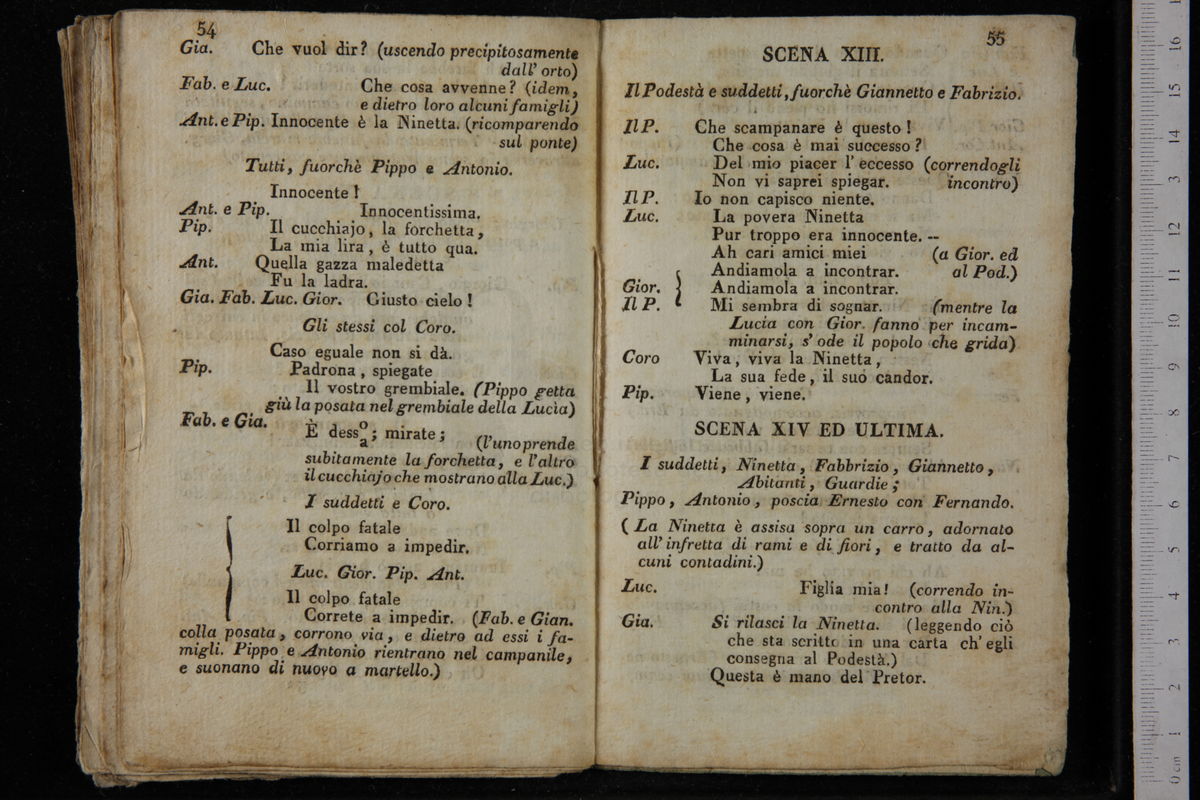 54
Gia. Che vuol dir? (uscendo precipitosamente
dall' orto)
Fab. e Luc. Che cosa avvenne? (idem,
e dietro loro alcuni famigli)
Ant. e Pip. Innocente è la Ninetta. (ricomparendo
sul ponte)
Tutti, fuorchè Pippo e Antonio.
Innocente!
Ant. e Pip. Innocentissima.
Pip. Il cucchiajo, la forchetta,
La mia lira, è tutto qua.
Ant. Quella gazza maledetta
Fu la ladra.
Gia. Fab. Luc. Gior. Giusto cielo!
Gli stessi col Coro.
Caso eguale non si dà.
Pip. Padrona, spiegate
Il vostro grembiale. (Pippo getta
giù la posata nel grembiale della Lucia)
Fab. e Gia. È desso/a; mirate; (l'uno prende
subitamente la forchetta, e l'altro
il cucchiajo che mostrano alla Luc.)
I suddetti e Coro.
Il colpo fatale
Corriamo a impedir.
Luc. Gior. Pip. Ant.
Il colpo fatale
Correte a impedir. (Fab. e Gian.
colla posata, corrono via, e dietro ad essi i fa-
migli. Pippo e Antonio rientrano nel campanile,
e suonano di nuovo a martello.)
55
SCENA XIII.
Il Podestà e suddetti, fuorchè Giannetto e Fabrizio.
Il P. Che scampanare è questo!
Che cosa è mai successo?
Luc. Del mio piacer l' eccesso (correndogli
Non vi saprei spiegar. incontro)
Il P. Io non capisco niente.
Luc. La povera Ninetta
Pur troppo era innocente. --
Ah cari amici miei (a Gior. ed
Andiamola a incontrar. al Pod.)
Gior. Andiamola a incontrar.
Il P. Mi sembra di sognar. (mentre la
Lucia con Gior. fanno per incam-
minarsi, s' ode il popolo che grida)
Coro Viva, viva la Ninetta,
La sua fede, il suo candor.
Pip. Viene, viene.
SCENA XIV ED ULTIMA.
I suddetti, Ninetta, Fabbrizio, Giannetto,
Abitanti, Guardie;
Pippo, Antonio, poscia Ernesto con Fernando.
(La Ninetta è assisa sopra un carro, adornato
all' infretta di rami e di fiori, e tratto da al-
cuni contadini.)
Luc. Figlia mia! (correndo in-
contro alla Nin.)
Gia. Si rilasci la Ninetta. (leggendo ciò
che sta scritto in una carta ch' egli
consegna al Podestà.)
Questa è mano del Pretor.
0 cm 1 2 3 4 5 6 7 8 9 10 11 12 13 14 15 16